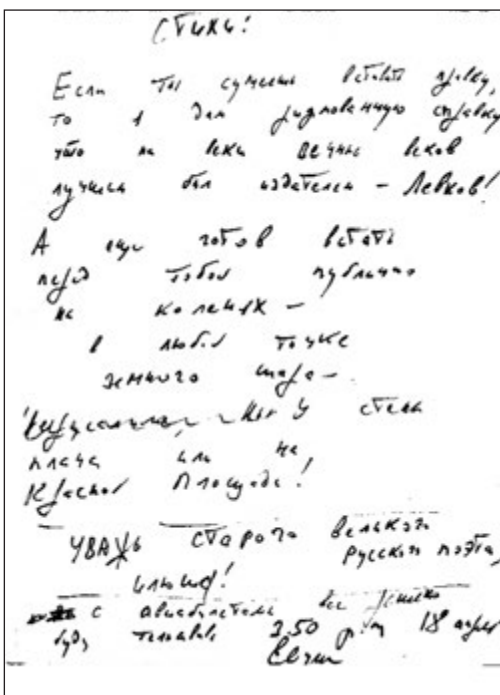 Стихи!
Если ты сумеешь вставить правку,
то я дам рифмованную справку
что на веки вечные веков
лучшим был издателем – Левков!
А еще готов встать
перед тобой публично
на коленях –
в любой точке
земного шара –
у стены
плача или на
Красной Площади!
УВАЖЬ старого великого
русского поэта,
Илюша!
с авиабилетами все решено
буду 2.50 18 апреля
Евгений